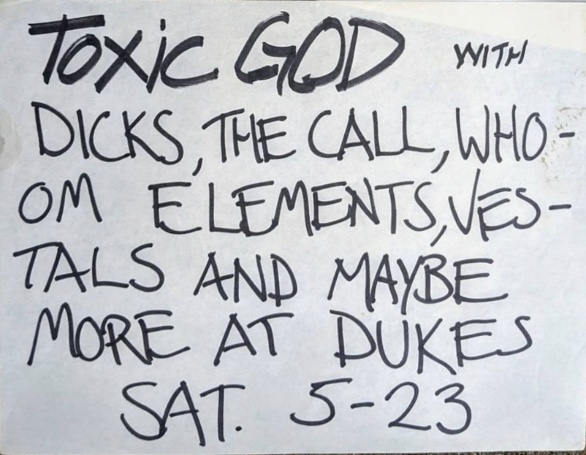 Toxic GOD WITH
DICKS, THE CALL, WHO-
OM ELEMENTS, VES-
TALS AND MAYBE
MORE AT DUKES
SAT. 5-23